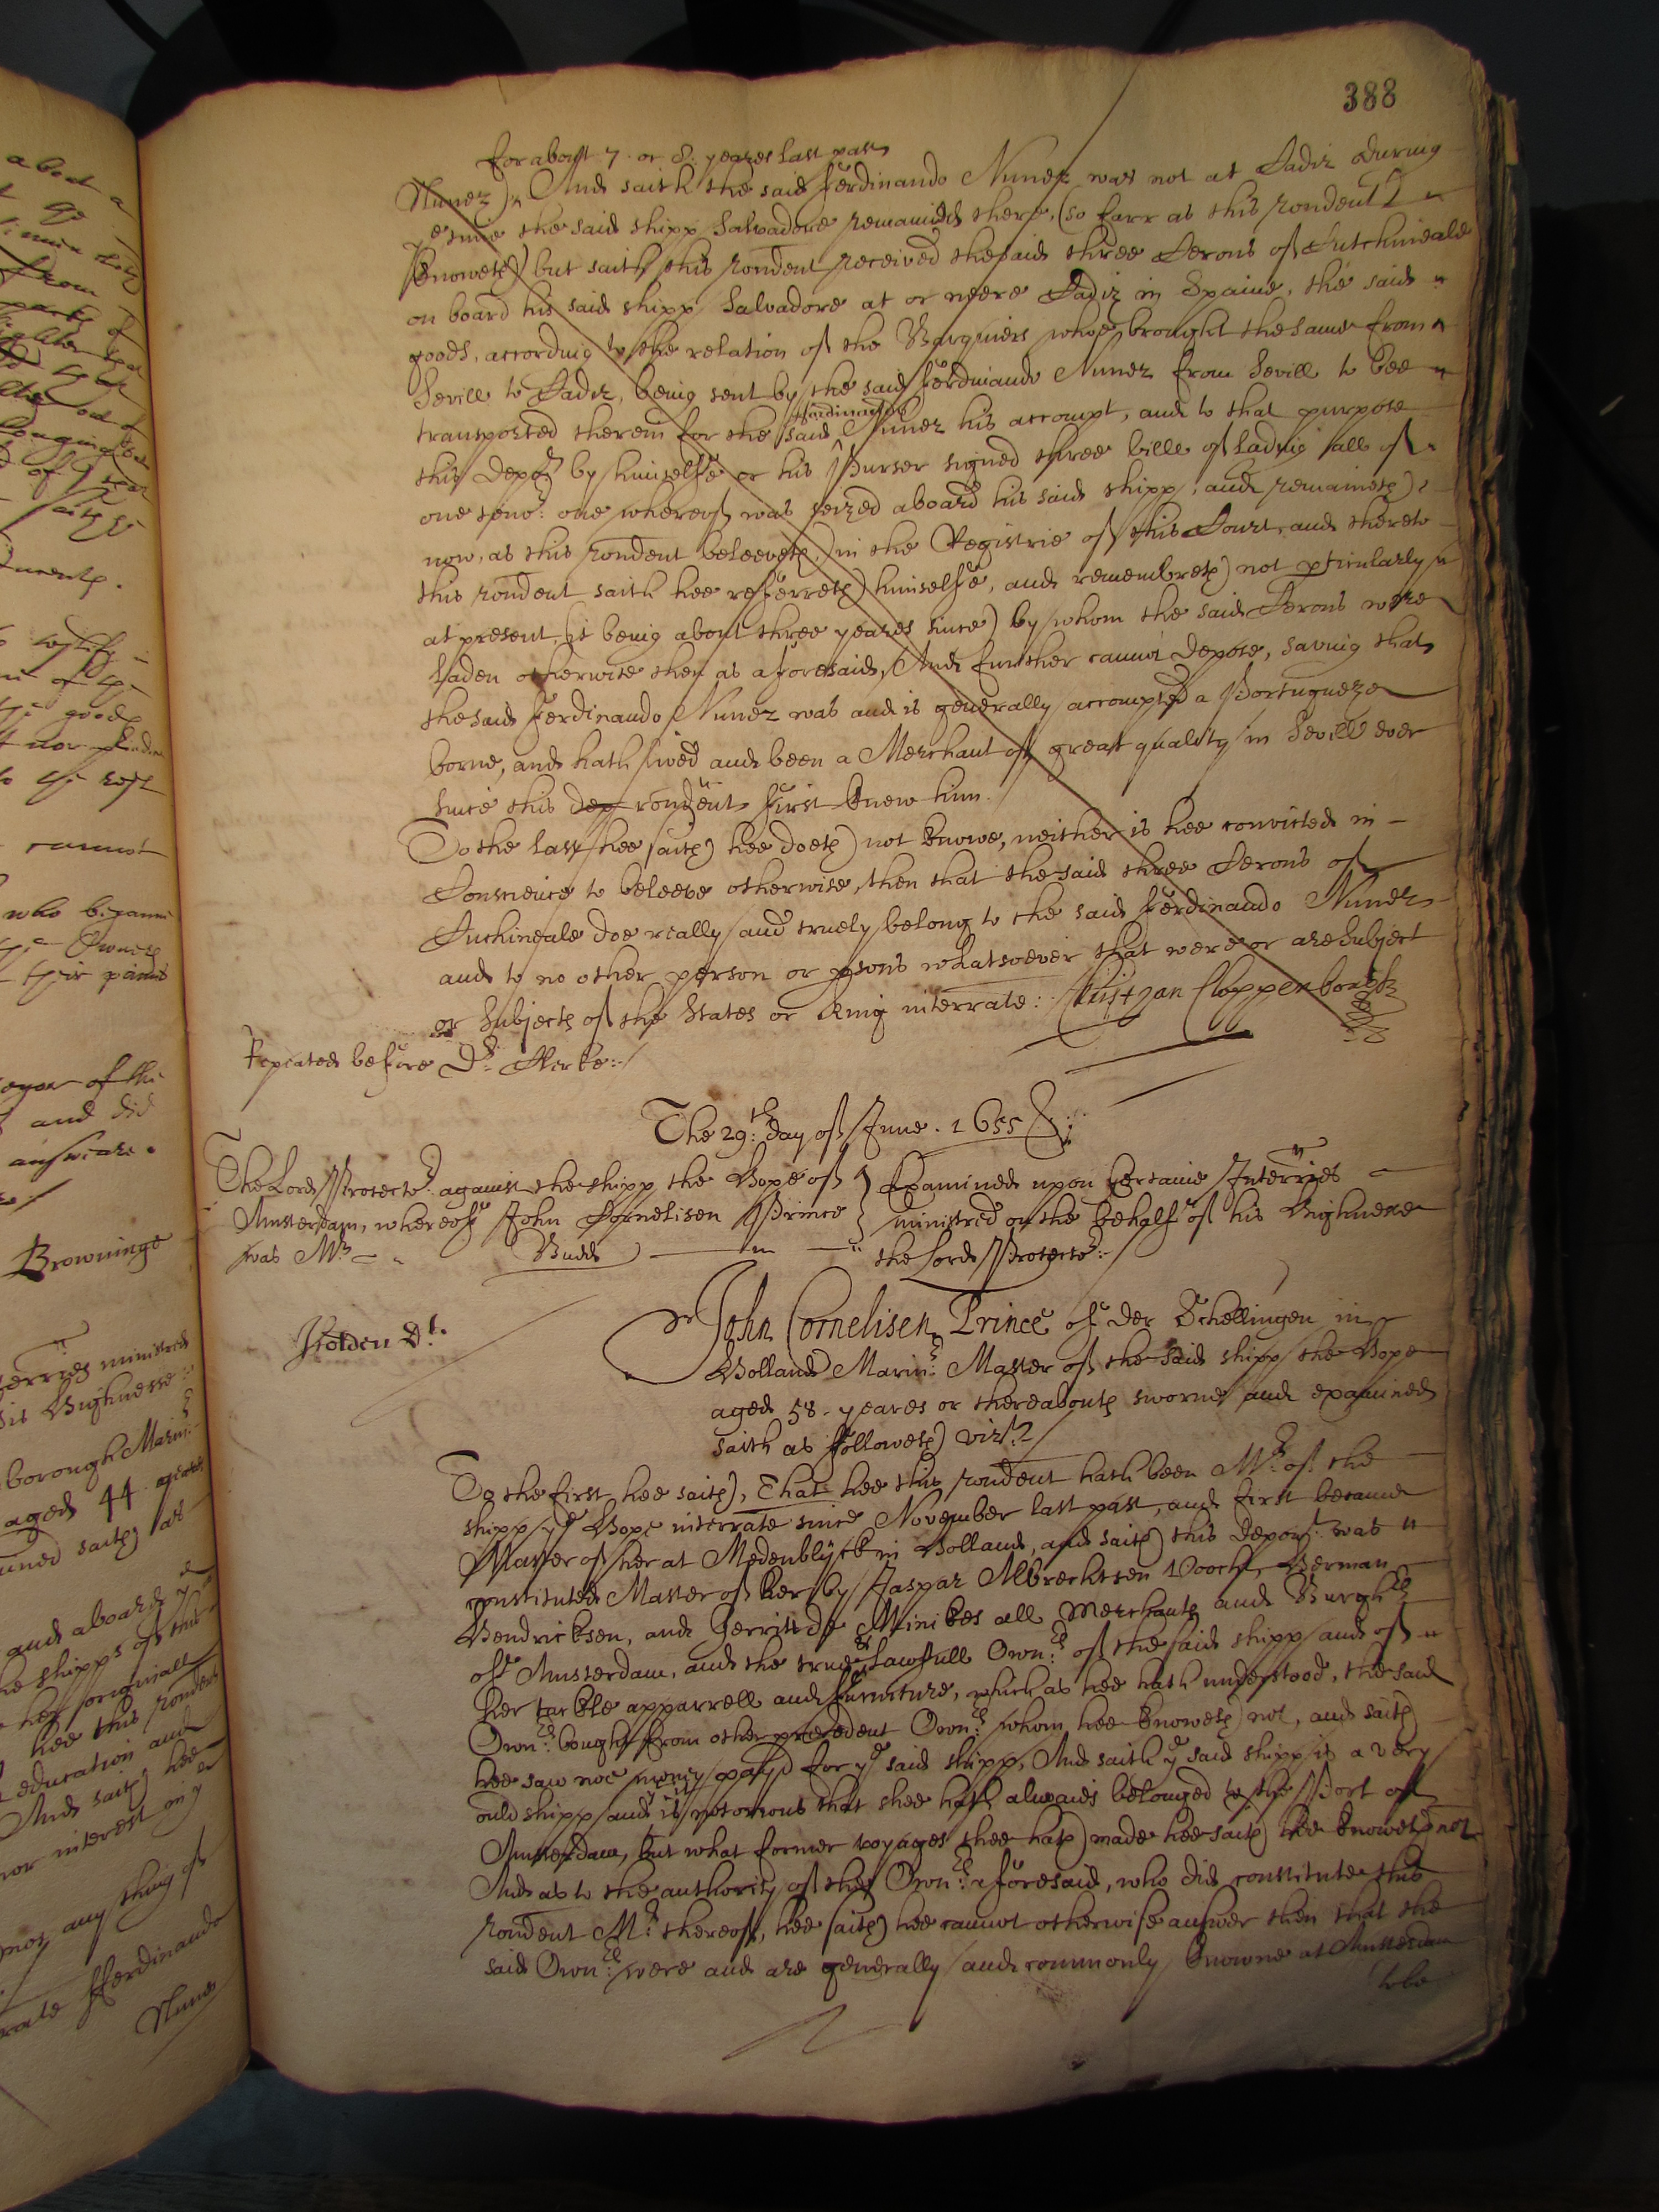 388
for about 7. or 8. yeares last past
Nunez) And saith the said fferdinando Nunez was not at Cadiz during
ye time the said shipp Salvadore remained there, (so farr as this rondent
knoweth) but saith this rondent received the said three Serons of Cutchineale
on board his said shipp Salvadore at or neere Cadiz in Spaine, the said
goods, according to the relation of the Barquiers who brought the same from
Sevill to Cadiz, being sent by the said fferdinando Nunez from Sevill to bee
transported therein for the said fferdinando Nunez his accompt, and to that purpose
this depot by himselfe or his Purser signed three bills of lading all of
one tenor: one whereof was seized aboard his said shipp, and remaineth
now, as this rondent beleeveth, in the Registrie of this Court, and thereto
this rondent saith hee referreth himselfe, and remembreth not perticularly
at present, (it being about three yeares since) by whom the said Serons were
laden otherwise then as aforesaid, And further cannot depose, saving that
the said fferdinando Nunez was and is generally accompted a Portugueze
borne, and hath lived and been a Merchant of great quality in Sevill ever
since this dep rondent first knew him.
To the last hee saith hee doeth not knowe, neither is hee convicted in
Conscience to beleeve otherwise, then that the said three Serons of
Cuchineale doe really and truely belong to the said fferdinando Nunez
and to no other person or persons whatsoever that were or are Subject
or Subjects of the States or King interrate: Cristian Cloppenborgh
Repeated before Dr. Clerke:
The 29th: day of June. 1655
The Lord Protector: against the shipp the Hope of
Amsterdam, whereof John Cornelisen Prince
was Mr
Budd
Examined upon Certaine Interries
ministred on the behalf of his Highnesse
the Lord Protector:
Holden dt.
John Cornelisen Prince of der Schellingen in
Holland Marinr: Master of the said shipp the Hope
aged 58. yeares or thereabouts sworne and examined
saith as followeth vizt
To the first hee saith, That hee this rondent hath been Mr: of the
shipp ye Hope interrate since November last past, and first became
Master of her at Medenblijck in Holland, and saith this depont: was
constituted Master of her by Jaspar Albrechtsen Vooch, Herman
Hendricksen, and Gerritt de Minikes all Merchants and Burghrs
of Amsterdam, and the true & Lawfull Ownrs: of the said shipp and of
her tackle apparrell and furniture, which as hee hath understood, the said
Ownrs: bought from other precedent Ownrs: whom hee knoweth not, and saith
hee saw noe money payd for ye said shipp, And saith ye said shipp is a very
ould shipp and it is notorious that shee hath alwaies belonged to the Port of
Amsterdam, but what former voyages shee hath made hee saith hee knoweth not
And as to the authority of the Ownrs: aforesaid, who did constitute this
rondent Mr: thereof, hee saith hee cannot otherwise answer then that the
said Ownrs: were and are generally and commonly knowne at Amsterdam
to be